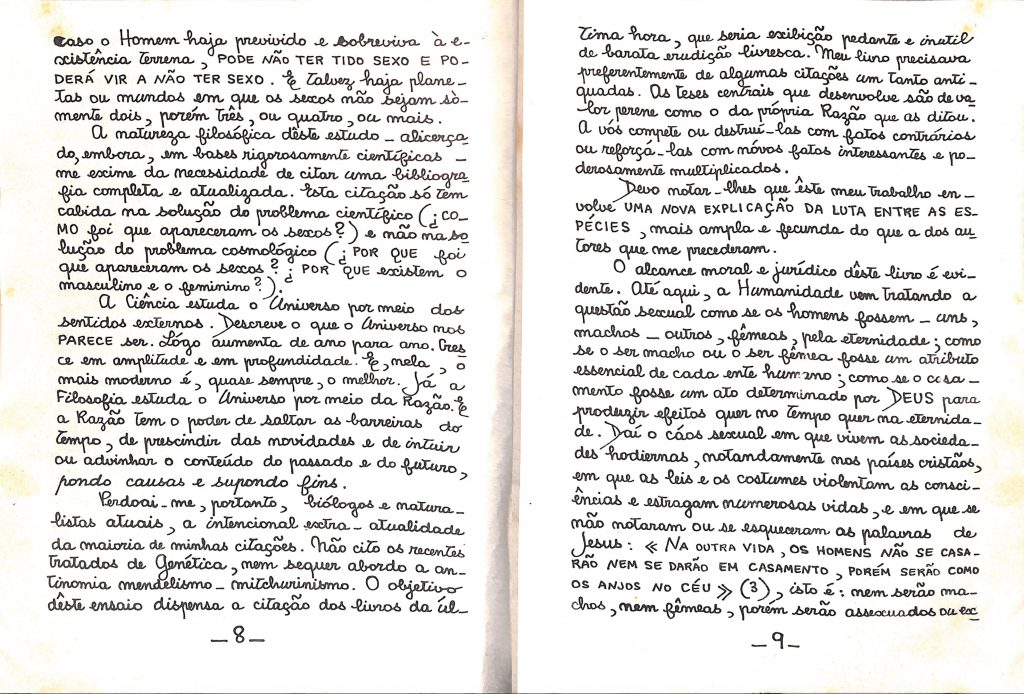 caso o Homem haja previvido e sobreviva à e-
xistência terrena, PODE NÃO TER TIDO SEXO E PO-
DERÁ VIR A NÃO TER SEXO. E talvez haja plane-
tas ou mundos em que os sexos não sejam sò-
mente dois, porém três, ou quatro, ou mais.
A natureza filosófica dêste estudo _ alicerça
do, embora, em bases rigorosamente científicas _
me exime da necessidade de citar uma bibliogra-
fia completa e atualizada. Esta citação só tem
cabida na solução do problema científico (¿CO-
MO foi que apareceram os sexos?) e não na so-
lução do problema cosmológico (¿POR QUE foi
que apareceram os sexos? ¿POR QUE existem o
masculino e o feminino?).
A Ciência estuda o Universo por meio dos
sentidos externos. Descreve o que o Universo nos
PARECE SER. Lógo aumenta de ano para ano. Cres
ce em amplitude e em profundidade. E, nela, o
mais moderno é, quase sempre, o melhor. Já a
Filosofia estuda o Universo por meio da Razão. E
a Razão tem o poder de saltar as barreiras do
tempo, de prescindir das novidades e de intuir
ou advinhar o conteúdo do passado e do futuro,
pondo causas e supondo fins.
Perdoai-me, portanto, biólogos e natura-
listas atuais, a intencional extra-atualidade
da maioria de minhas citações. Não cito os recentes
tratados de Genética, nem sequer abordo a an-
tinomia mendelismo-mitchurinismo. O objetivo
dêste ensaio dispensa a citação dos livros da úl-
_8_
tima hora, que seria exibição pedante e inutil
de barata erudição livresca. Meu livro precisava
preferentemente de algumas citações um tanto anti-
quadas. Os teses centrais que desenvolve são de va-
lor perene como o da própria Razão que as ditou.
A vós compete ou destruí-las com fatos contrários
ou reforçá-las com nóvos fatos interessantes e po-
derosamente multiplicados.
Devo notar-lhes que êste meu trabalho en-
volve UMA NOVA EXPLICAÇÃO DA LUTA ENTRE AS ES-
PÉCIES, mais ampla e fecunda do que a dos au-
tores que me precederam.
O alcance moral e jurídico dêste livro é evi-
dente. Até aqui, a Humanidade vem tratando a
questão sexual como se os homens fossem _ uns,
machos _ outros, fêmeas, pela eternidade; como
se o ser macho ou o ser fêmea fosse um atributo
essencial de cada ente humano; como se o casa-
mento fosse um ato determinado por DEUS para
produzir efeitos quer no tempo quer na eternida-
de. Daí o cáos sexual em que vivem as socieda-
des hodiernas, notandamente nos países cristãos,
em que as leis e os costumes violentam as consci-
ências e estragam numerosas vidas, e em que se
não notaram ou se esqueceram as palavras de
Jesus: « NA OUTRA VIDA, OS HOMENS NÃO SE CASA-
RÃO NEM SE DARÃO EM CASAMENTO, PORÉM SERÃO COMO
OS ANJOS NO CÉU » (3), isto é: nem serão ma-
chos, nem fêmeas, porém serão assexuados ou ex
_9_